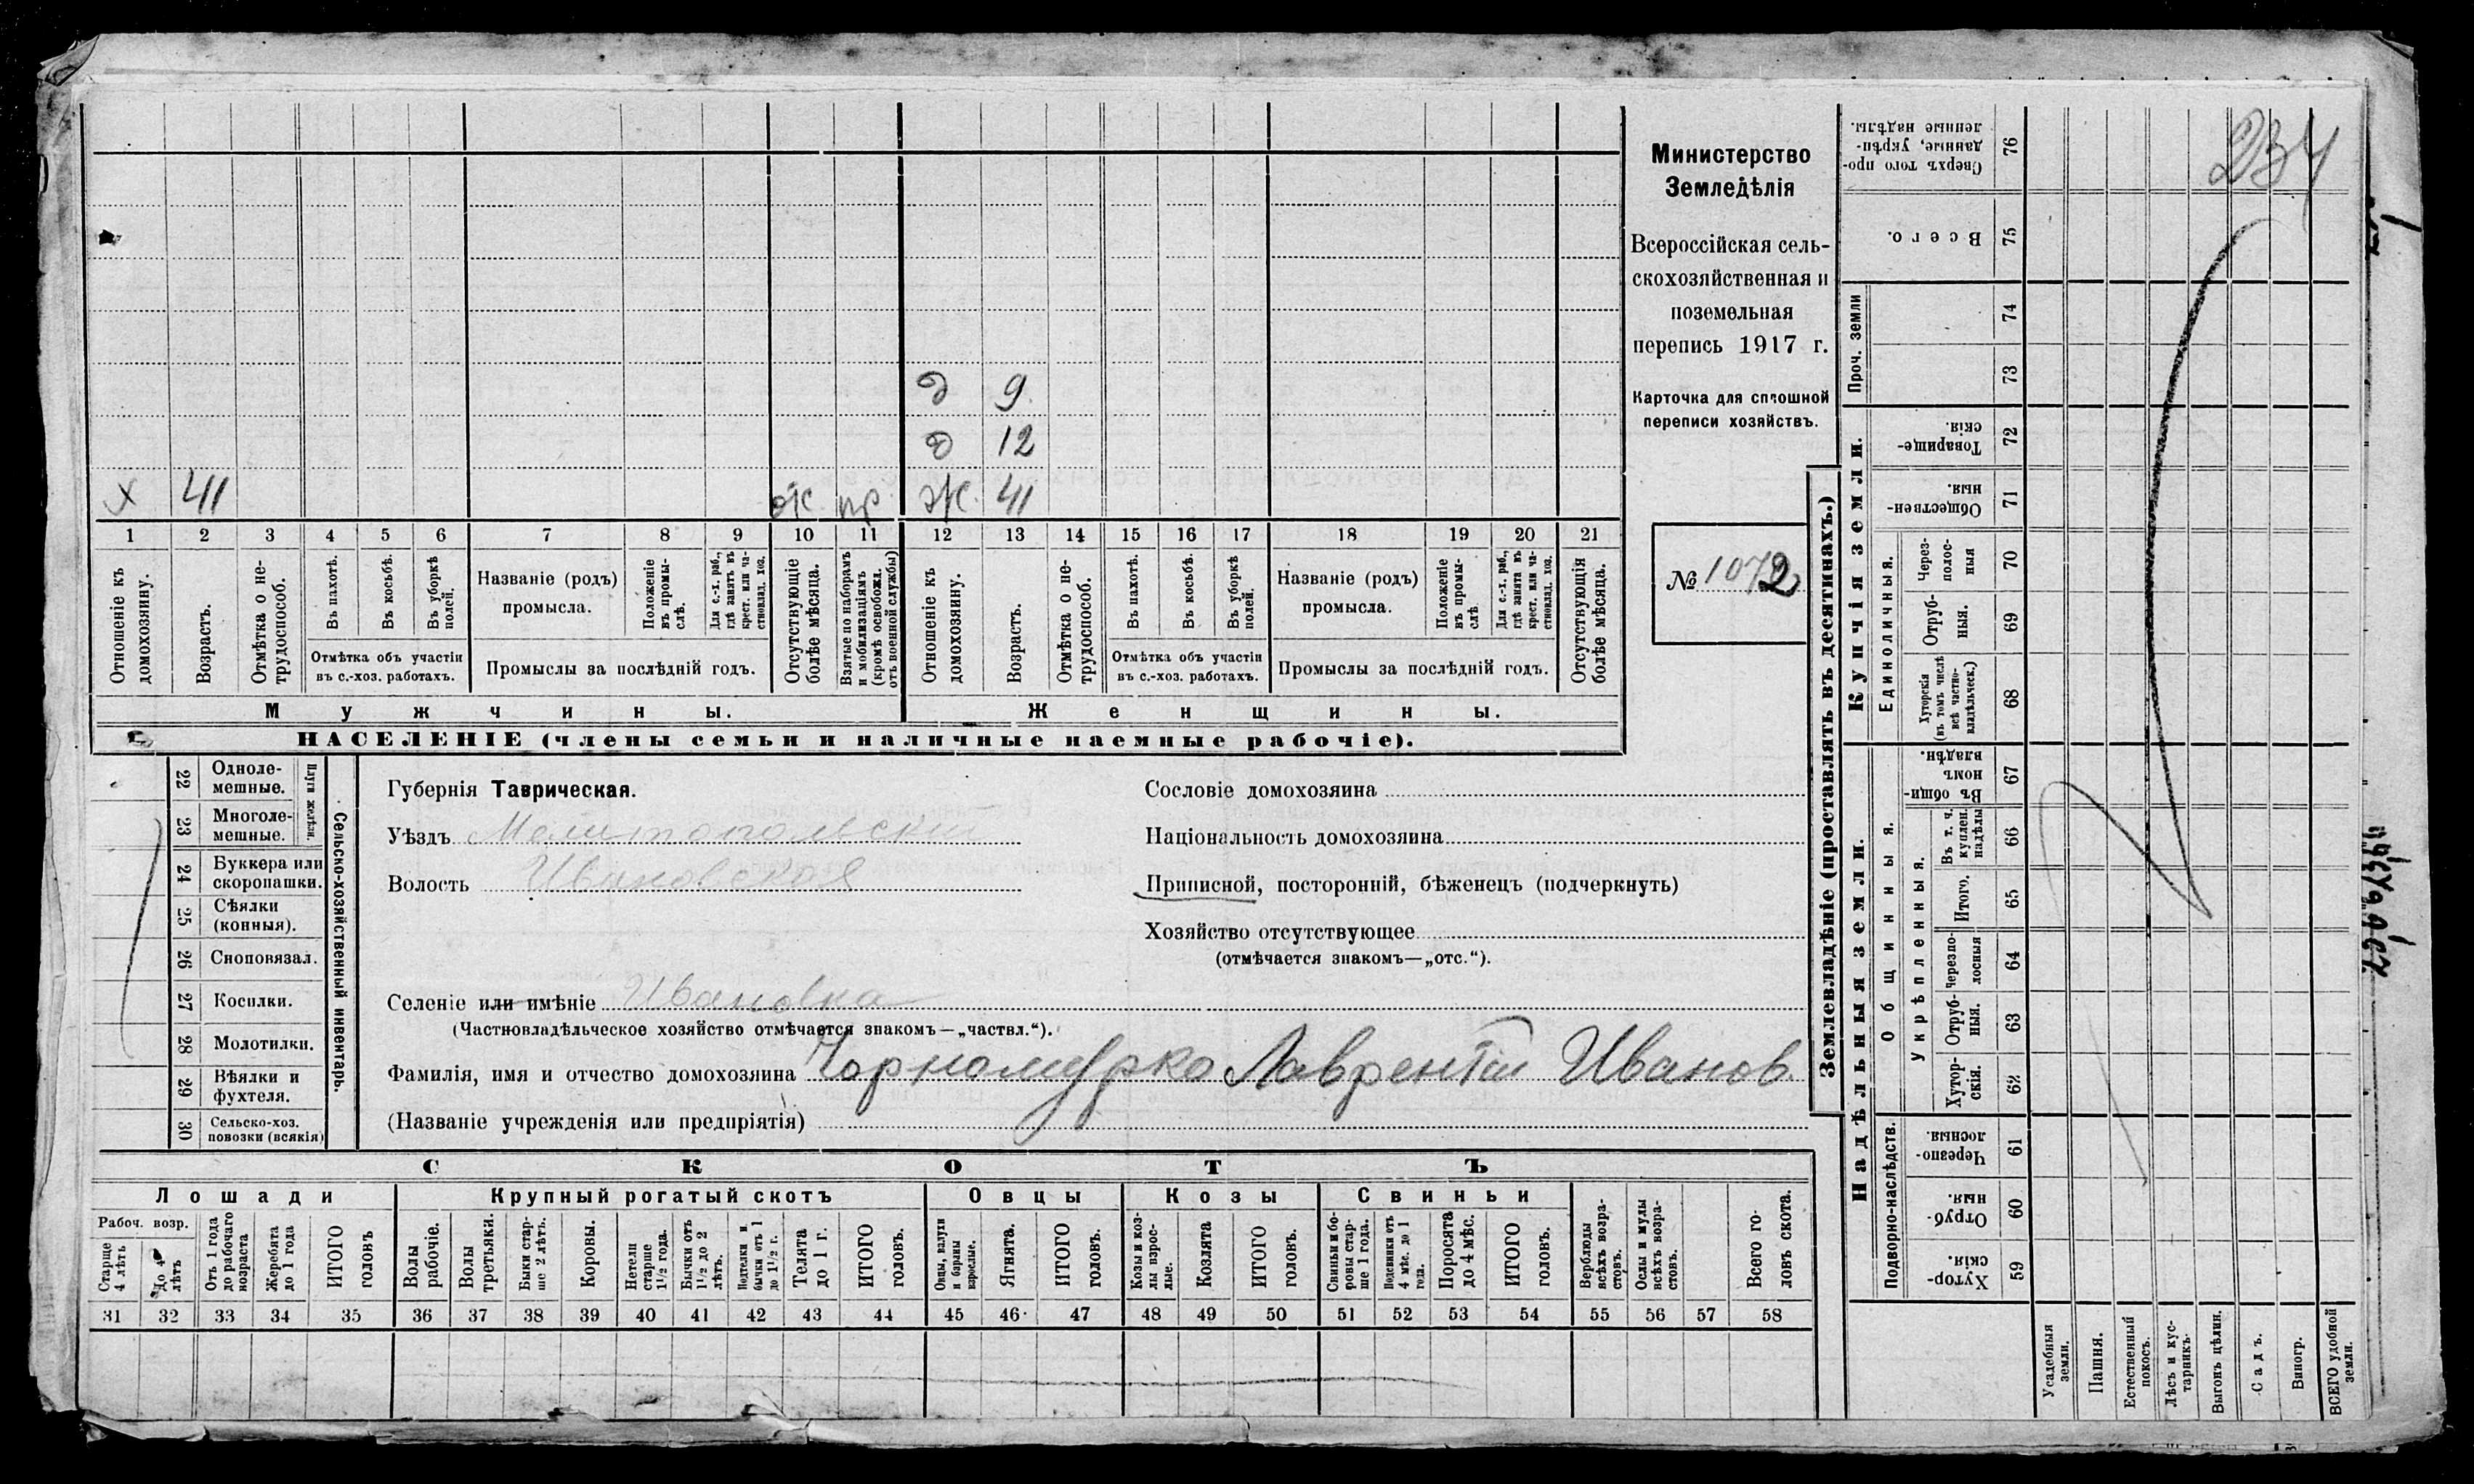 234
Министерство
Земледѣлія
Всероссійская сель-
скохозяйственная и
поземельная
перепись 1917 г.
Карточка для сплошной
переписи хозяйствъ.
№ 1072
д 9
д 12
х 41 ж 41
1 2 3 4 5 6 7 8 9 10 11 12 13 14 15 16 17 18 19 20 21
Отношеніе къ домохозяину.
Возрастъ.
Отмѣтка о не-трудоспособ.
Въ пахотѣ.
Въ косьбѣ.
Въ уборкѣ полей.
Отмѣтка объ участіи
въ с.-хоз. работахъ.
Названіе (родъ)
промысла.
Положеніе въ промы-слѣ.
Для с.-х. раб., гдѣ занятъ въ крест. или ча-стновлад. хоз.
Промыслы за послѣдній годъ.
Отсутствующіе болѣе мѣсяца.
Взятые по наборамъ и мобилизаціямъ (кромѣ освобожд. отъ военной службы)
Отношеніе къ домохозяину.
Возрастъ.
Отмѣтка о не-трудоспособ.
Въ пахотѣ.
Въ косьбѣ.
Въ уборкѣ полей.
Отмѣтка объ участіи
въ с.-хоз. работахъ.
Названіе (родъ)
промысла.
Положеніе въ промы-слѣ.
Для с.-х. раб., гдѣ занята въ крест. или ча-стновлад. хоз.
Промыслы за послѣдній годъ.
Отсутствующія болѣе мѣсяца.
Мужчины. Женщины.
НАСЕЛЕНІЕ (члены семьи и наличные наемные рабочіе).
22 Одноле-мешные.
23 Многоле-мешные.
24 Буккера или скоропашки.
25 Сѣялки (конныя).
26 Сноповязал.
27 Косилки.
28 Молотилки.
29 Вѣялки и фухтеля.
30 Сельско-хоз. повозки (всякія)
Сельско-хозяйственный инвентарь.
Губернія Таврическая.
Уѣздъ Мелитопольскій
Волость Ивановская
Селеніе или имѣніе Ивановка
(Частновладѣльческое хозяйство отмѣчается знакомъ—„частвл.“).
Фамилія, имя и отчество домохозяина Чорномурко Лаврентій Иванов.
(Названіе учрежденія или предпріятія)
Сословіе домохозяина
Національность домохозяина
Приписной, посторонній, бѣженецъ (подчеркнуть)
Хозяйство отсутствующее
(отмѣчается знакомъ—„отс.“).
СКОТЪ
Лошади Крупный рогатый скотъ Овцы Козы Свиньи
Рабоч. возр.
Старше 4 лѣтъ
До 4 лѣтъ
Отъ 1 года до рабочаго возраста
Жеребята до 1 года
ИТОГО головъ
Волы рабочіе.
Волы третьяки.
Быки стар-ше 2 лѣтъ.
Коровы.
Нетели старше 1½ года.
Бычки отъ 1½ до 2 лѣтъ.
Телята до 1 г.
ИТОГО головъ.
Овцы, валухи и бараны взрослые.
Ягнята.
ИТОГО головъ.
Козы и коз-лы взрос-лые.
Козлята
ИТОГО головъ.
Свиньи и бо-ровы стар-ше 1 года.
Поросята до 4 мѣс.
ИТОГО головъ.
Верблюды всѣхъ возра-стовъ.
Ослы и мулы всѣхъ возра-стовъ.
Всего го-ловъ скота.
31 32 33 34 35 36 37 38 39 40 41 42 43 44 45 46 47 48 49 50 51 52 53 54 55 56 57 58
Землевладѣніе (проставлять въ десятинахъ.)
Сверхъ того про-данные, укрѣп-ленные надѣлы. 76
Всего. 75
Проч. земли 74 73
Купчія земли.
Товарище-скія. 72
Обществен-ныя. 71
Единоличныя.
Через-полос-ныя 70
Отруб-ныя. 69
Хуторскія (въ томъ числѣ всѣ частно-владѣльческ.) 68
Надѣльныя земли.
Общинныя.
Въ общин-номъ владѣн. 67
Укрѣпленныя.
Въ т. ч. куплен. надѣлы 66
Итого. 65
Черезпо-лосныя 64
Отруб-ныя. 63
Хутор-скія. 62
Подворно-наслѣдств.
Черезпо-лосныя. 61
Отруб-ныя. 60
Хутор-скія. 59
Усадебныя земли.
Пашня.
Естественный покосъ.
Лѣсъ и кус-тарникъ.
Выгонъ цѣлин.
Садъ.
Виногр.
ВСЕГО удобной земли.